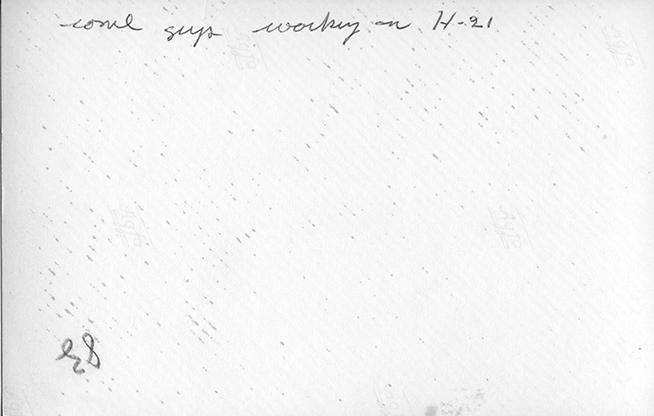 some guys working on H-21